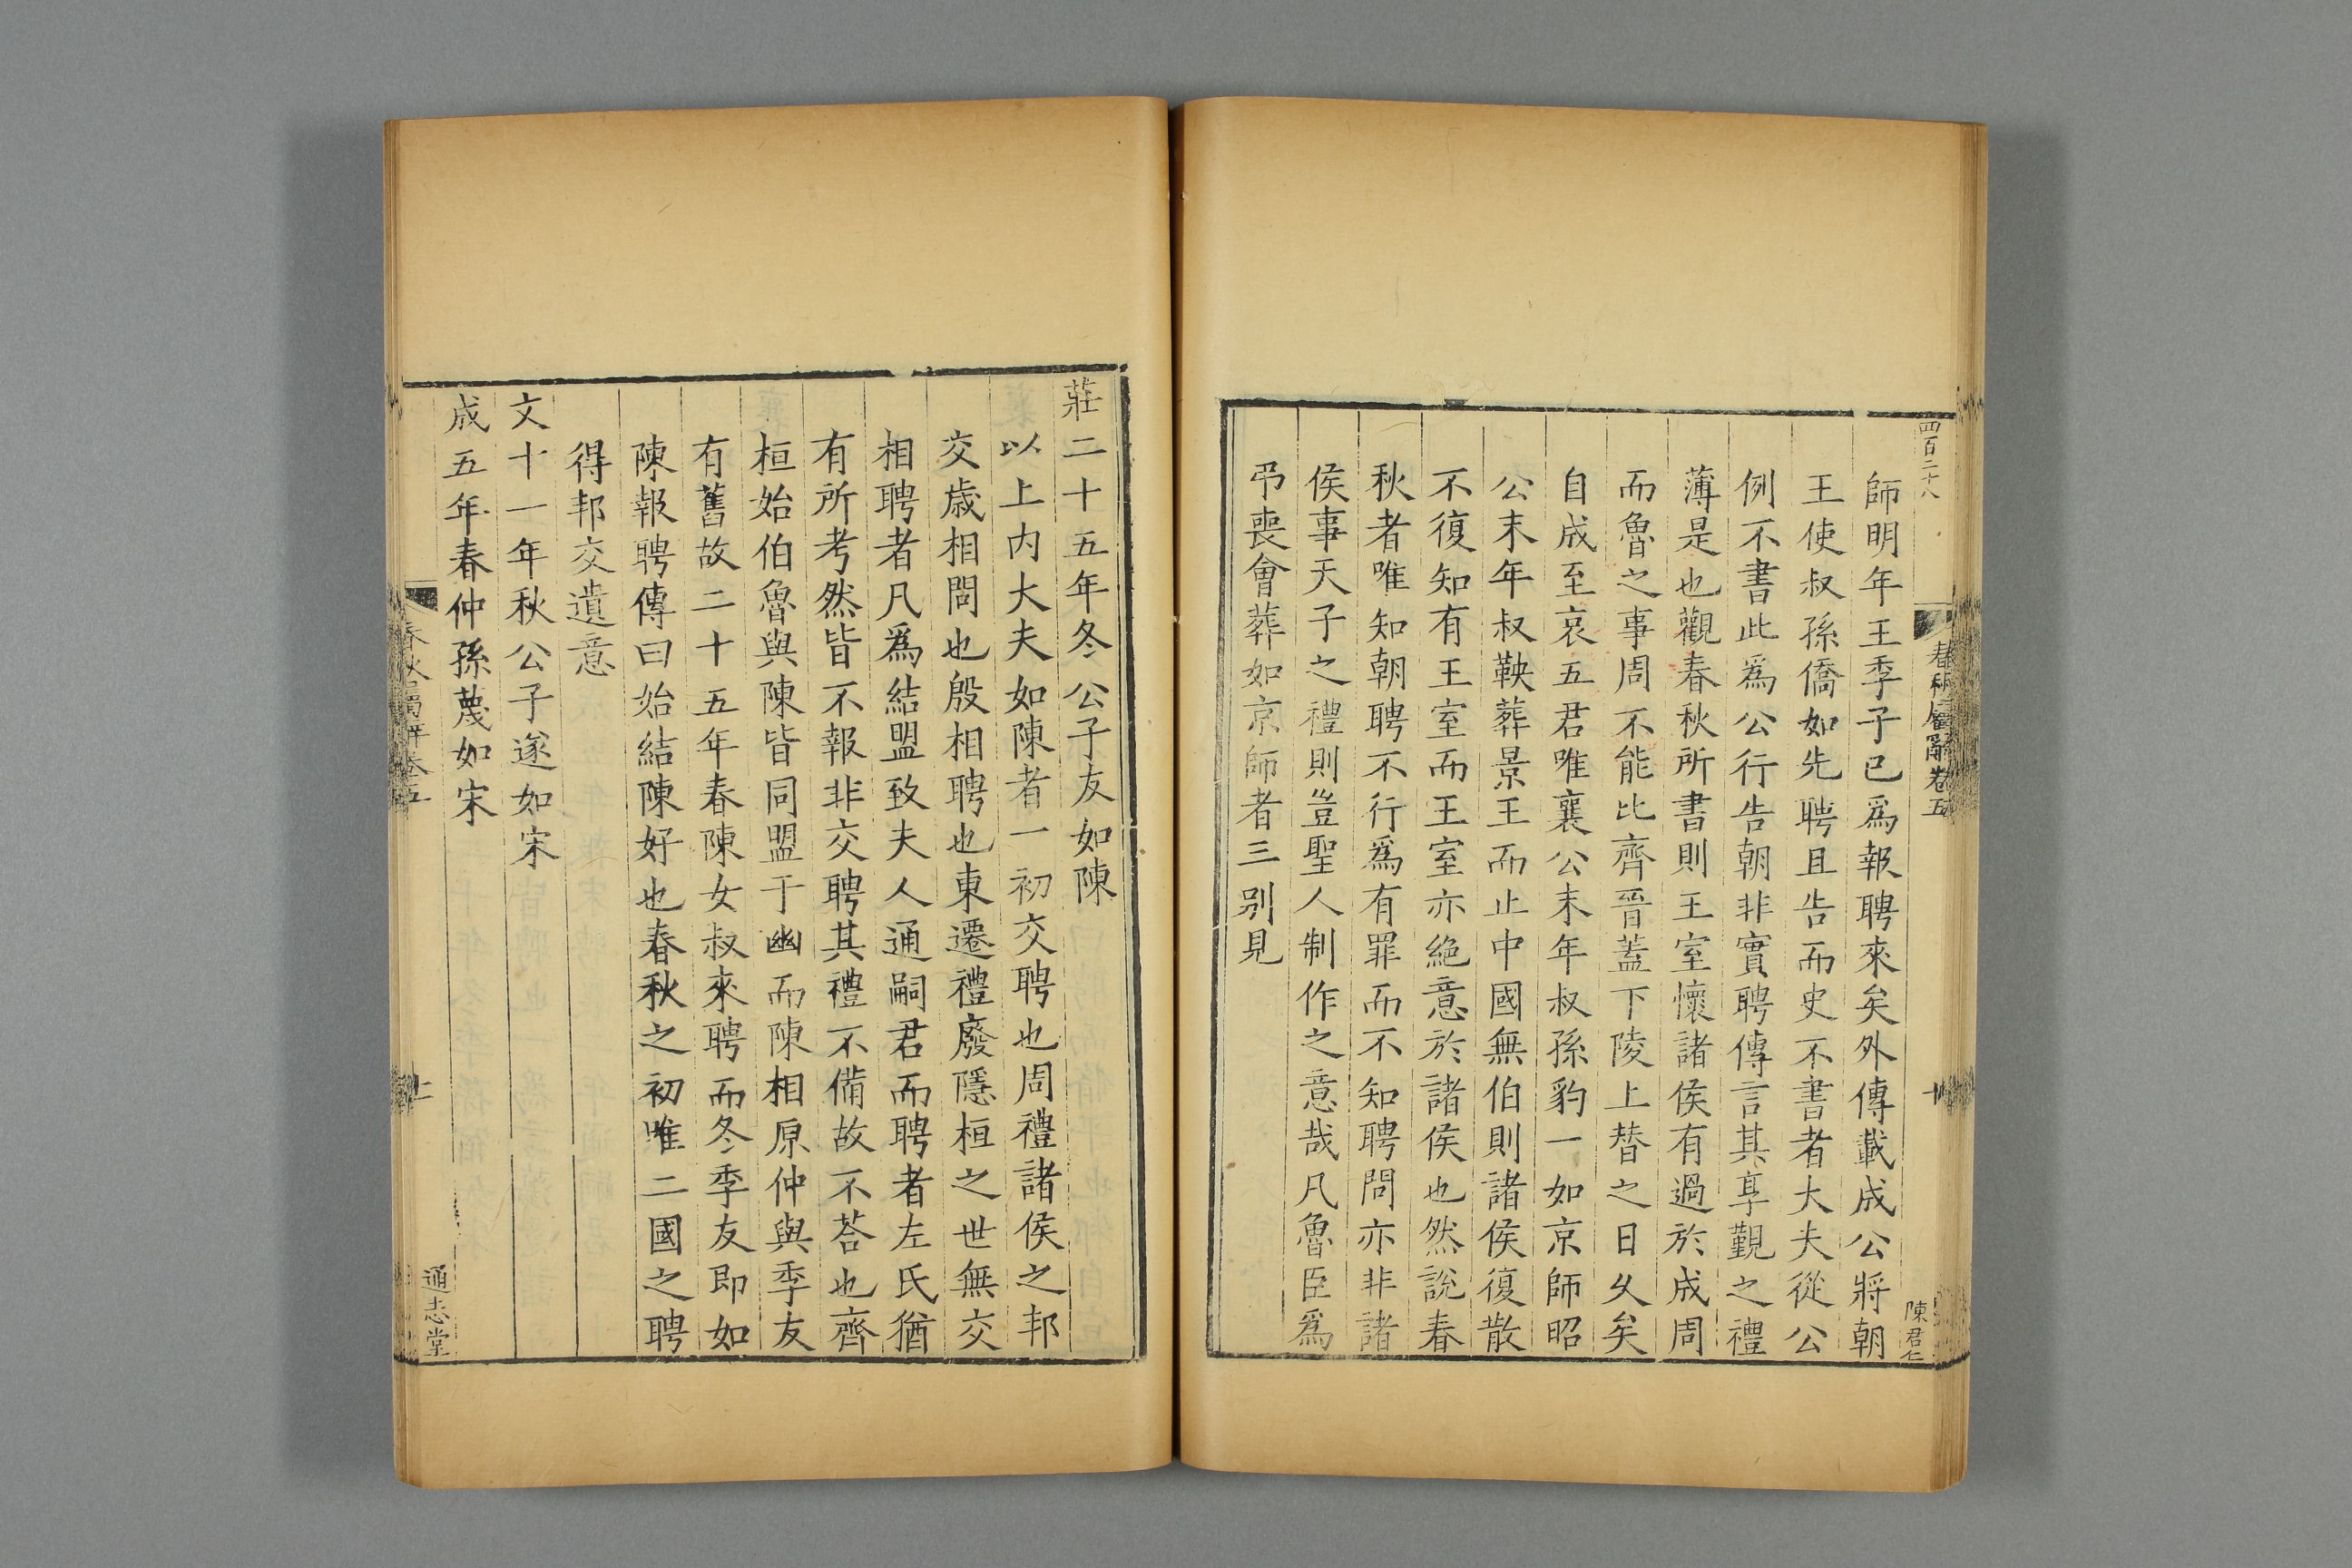 四百二十八
春秋屬辭卷五
十
陳君仁
師明年王季子已爲報聘來矣外傳載成公將朝
王使叔孫僑如先聘且告而史不書者大夫從公
例不書此爲公行告朝非實聘傳言其享覲之禮
薄是也觀春秋所書則王室懷諸侯有過於成周
而魯之事周不能比齊晉蓋下陵上替之日久矣
自成至哀五君唯襄公末年叔孫豹一如京師昭
公末年叔鞅葬景王而止中國無伯則諸侯復散
不復知有王室而王室亦絶意於諸侯也然說春
秋者唯知朝聘不行爲有罪而不知聘問亦非諸
侯事天子之禮則豈聖人制作之意哉凡魯臣爲
弔喪會葬如京師者三别見
莊二十五年冬公子友如陳
以上内大夫如陳者一初交聘也周禮諸侯之邦
交歲相問也殷相聘也東遷禮廢隱桓之世無交
相聘者凡爲結盟致夫人通嗣君而聘者左氏猶
有所考然皆不報非交聘其禮不備故不荅也齊
桓始伯魯與陳皆同盟于幽而陳相原仲與季友
有舊故二十五年春陳女叔來聘而冬季友即如
陳報聘傳曰始結陳好也春秋之初唯二國之聘
得邦交遺意
文十一年秋公子遂如宋
成五年春仲孫蔑如宋
春秋屬辭卷五
通志堂